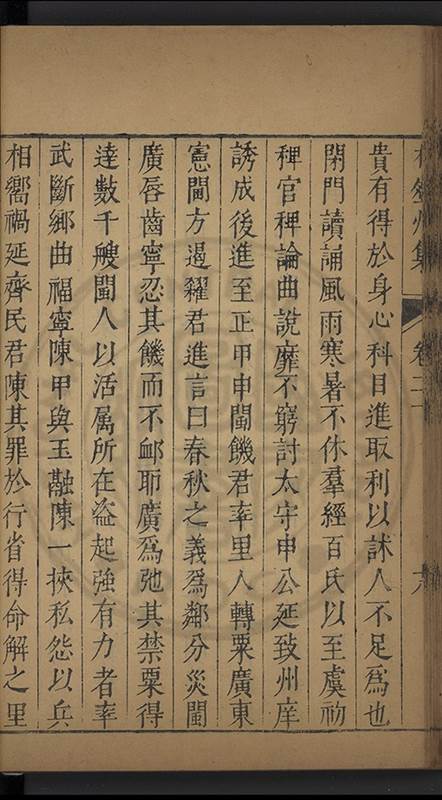 貴有得於身心科目進取利以訹人不足爲也
閉門讀誦風雨寒暑不休羣經百氏以至虞初
稗官稗論曲說靡不窮討太守申公延致州庠
誘成後進至正甲申閩饑君率里人轉粟廣東
憲閫方遏糴君進言曰春秋之義爲鄰分災閩
廣唇齒寧忍其饑而不䘏耶廣爲弛其禁粟得
逹數千艘閩人以活属所在盗起強有力者率
武斷鄉曲福寧陳甲與王融陳一挾私怨以兵
相嚮禍延齊民君陳其罪於行省得命解之里